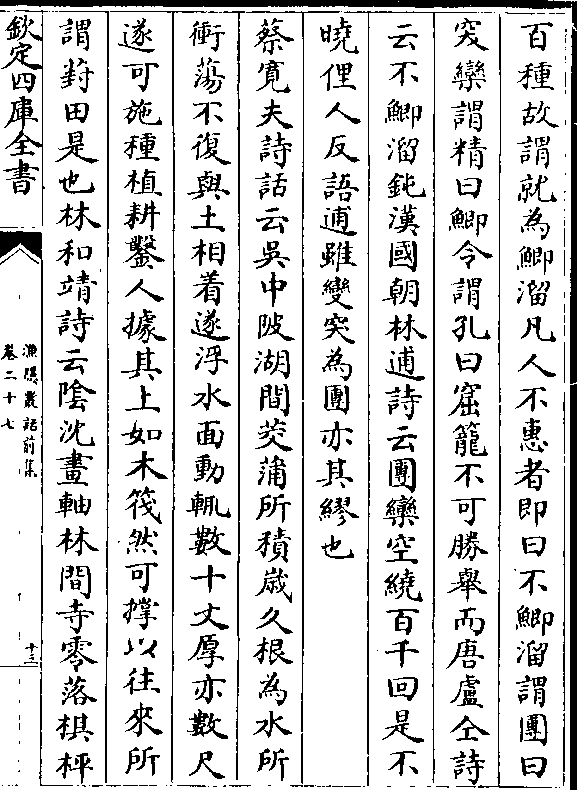 百種故謂就為鯽溜凡人不惠者即曰不鯽溜謂團曰
突欒謂精曰鯽令謂孔曰窟籠不可勝舉而唐盧仝詩
云不鯽溜鈍漢國朝林逋詩云團欒空繞百千回是不
曉俚人反語逋雖變突為團亦其繆也
蔡寛夫詩話云吳中陂湖間茭蒲所積歳久根為水所
衝蕩不復與土相着遂浮水面動輒數十丈厚亦數尺
遂可施種植耕鑿人據其上如木筏然可撑以往來所
謂葑田是也林和靖詩云陰沈畫軸林間寺零落棋枰
欽定四庫全書
漁隱叢話前集
卷二十七
十三